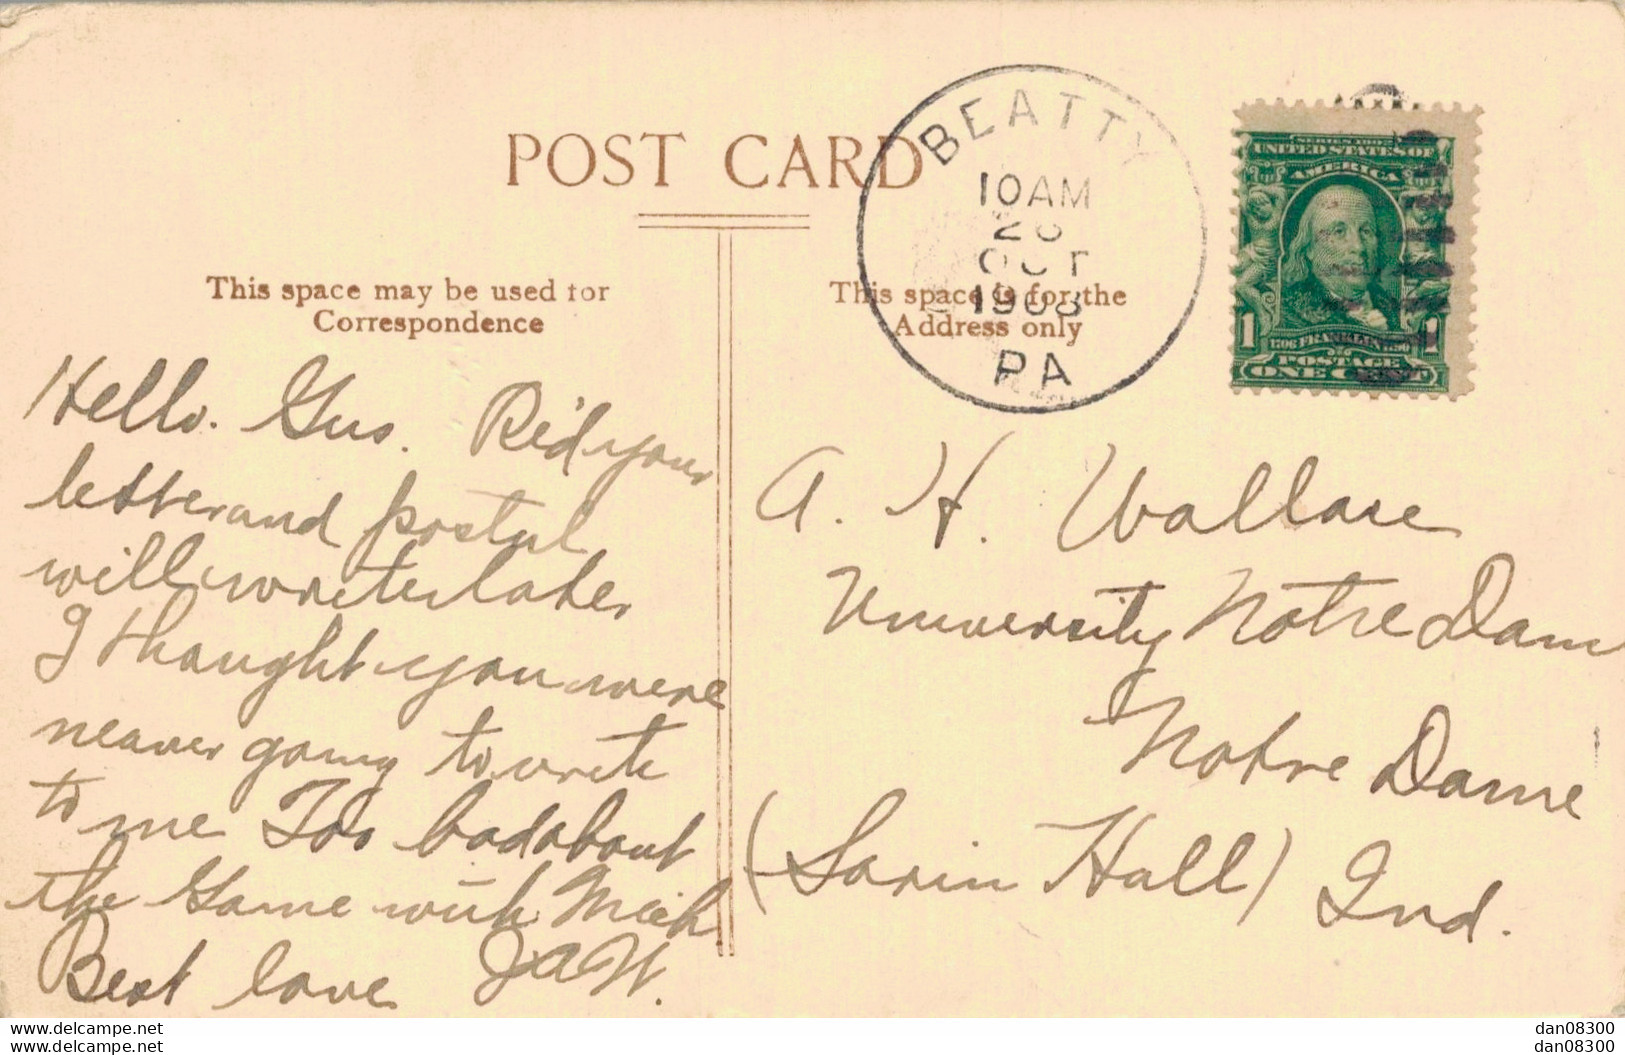 POST CARD
BEATTY
10 AM
OCT
1908
PA
SERIES 1902
UNITED STATES OF
AMERICA
1706 FRANKLIN 1790
1 1
POSTAGE
ONE CENT
This space may be used for
Correspondence
This space is for the
Address only
Hello. Gus. Re'd your
letter and postal
will write later
I thought you were
neaver going to write
to me Too bad about
the Game with Mich
Best love JAW.
A. H. Wallace
University Notre Dam
Notre Dame
(Sorin Hall) Ind.
delcampe.net
delcampe.net
dan08300
dan08300